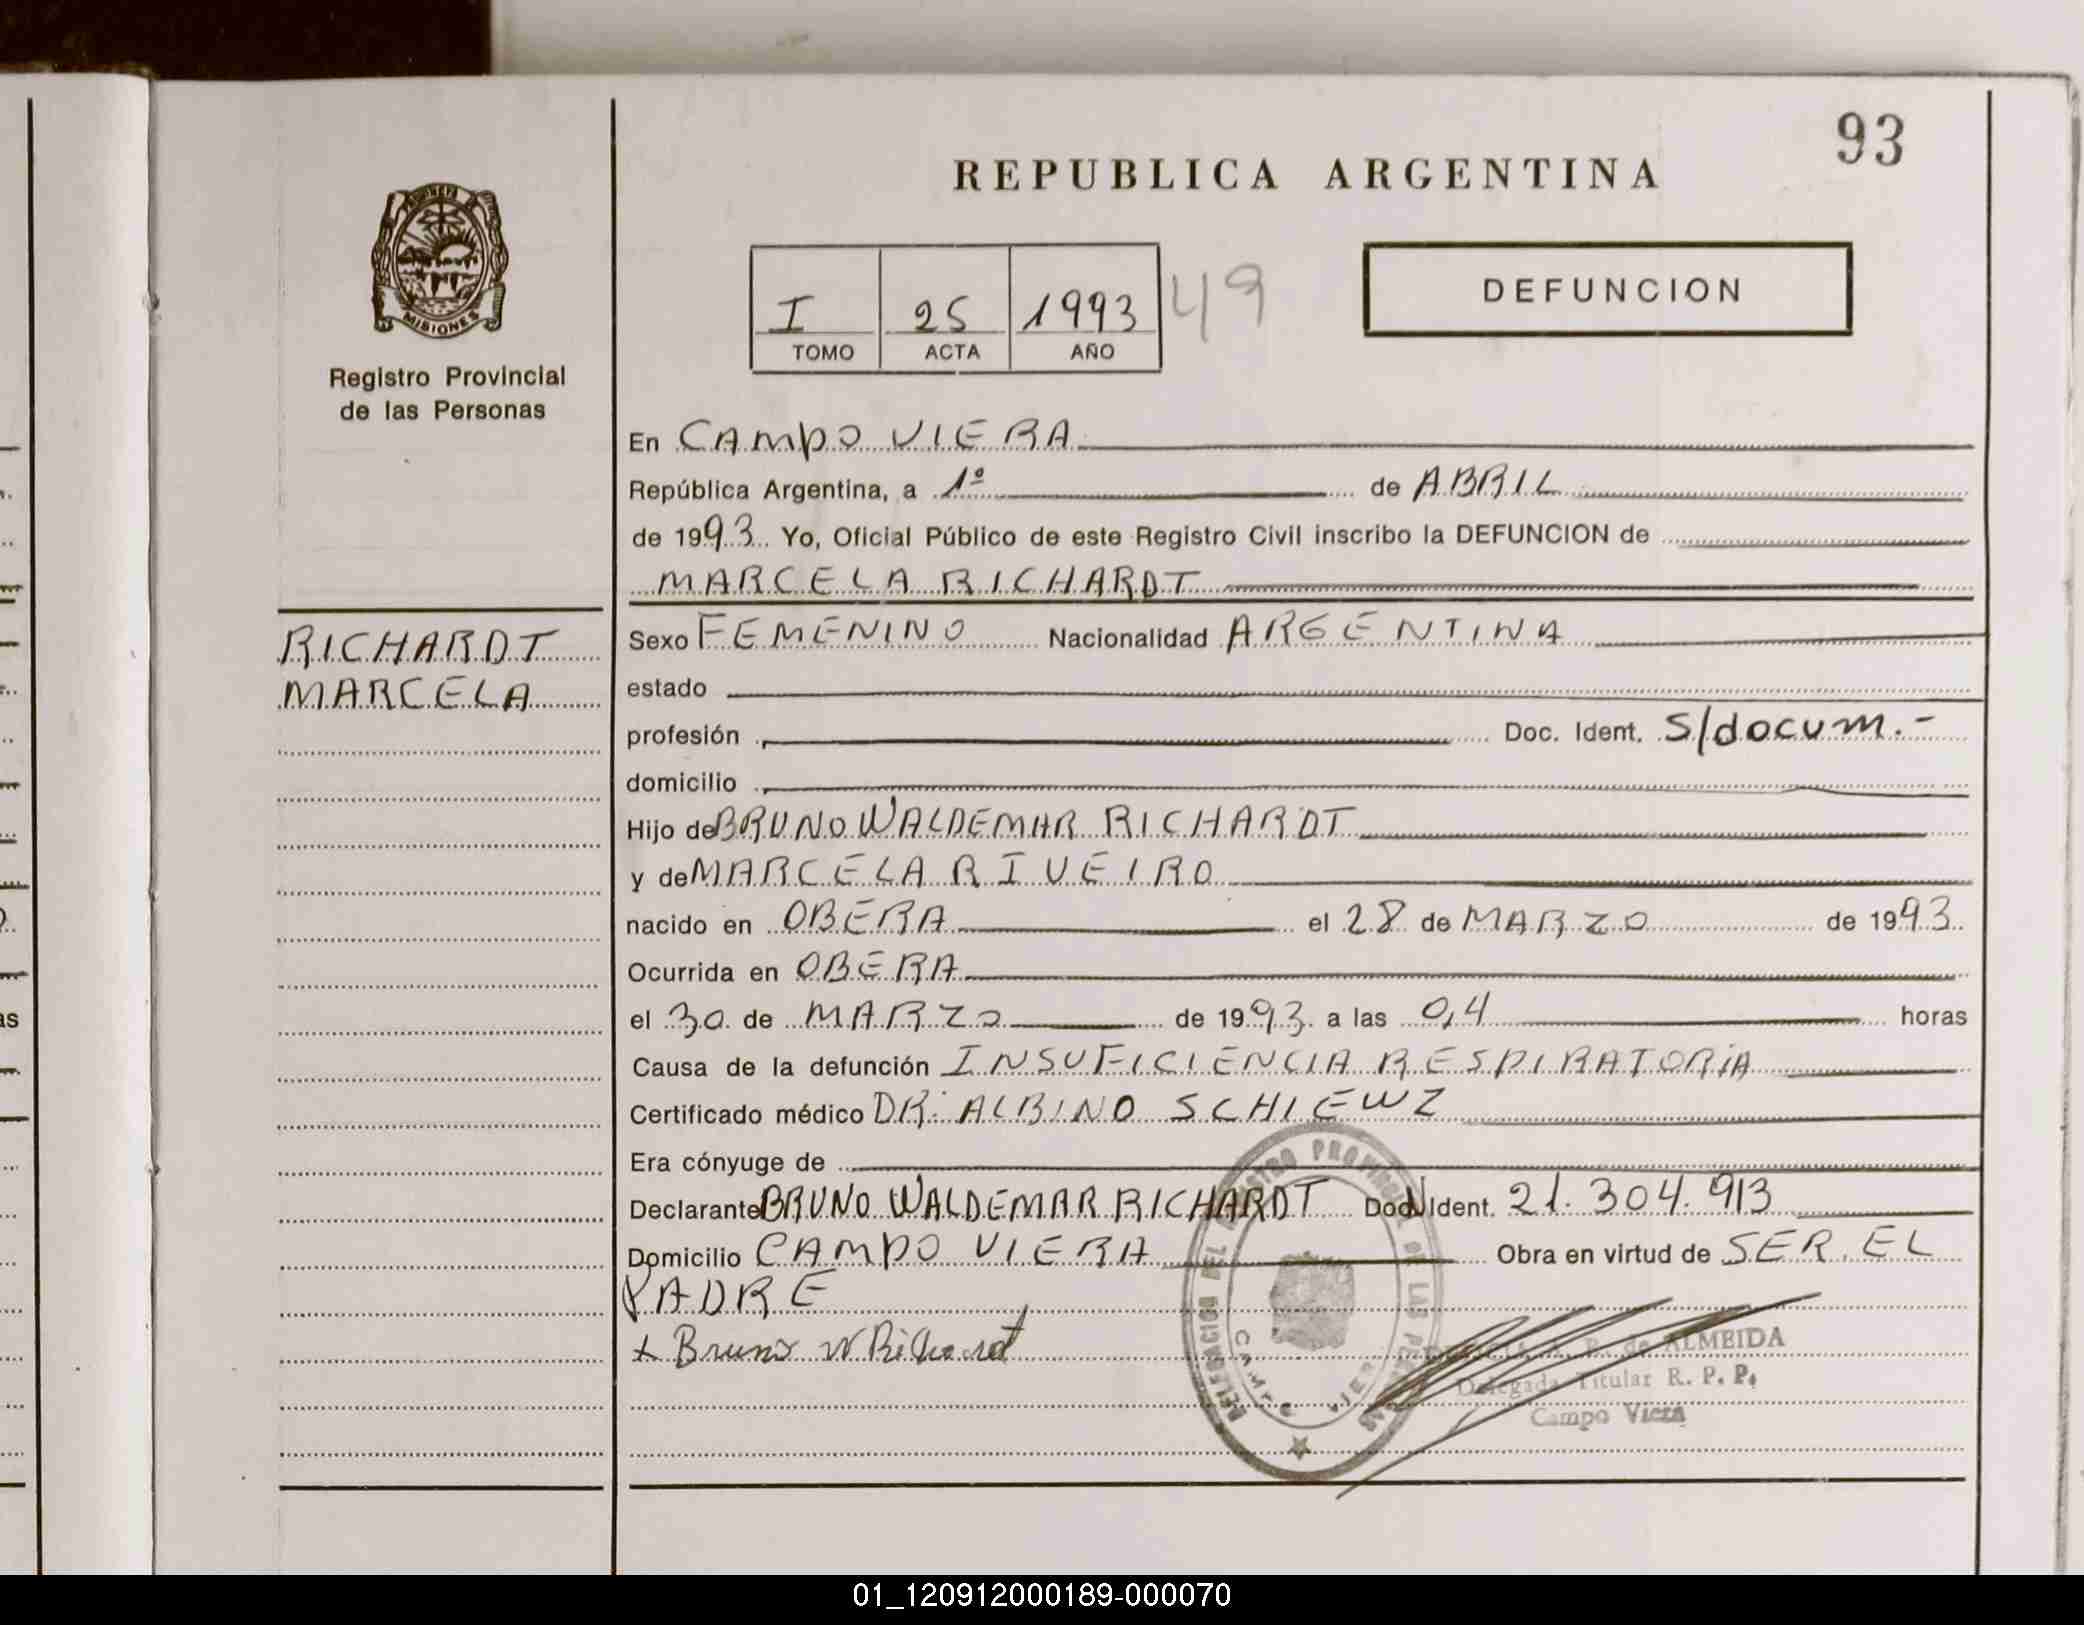 93
REPUBLICA ARGENTINA
MISIONES
Registro Provincial
de las Personas
I 25 1993 49
TOMO ACTA AÑO
DEFUNCION
En CAMPO VIERA
República Argentina, a 1º de ABRIL
de 1993 Yo, Oficial Público de este Registro Civil inscribo la DEFUNCION de
MARCELA RICHARDT
RICHARDT
MARCELA
Sexo FEMENINO Nacionalidad ARGENTINA
estado
profesión Doc. Ident. S/docum.-
domicilio
Hijo de BRUNO WALDEMAR RICHARDT
y de MARCELA RIVEIRO
nacido en OBERA el 28 de MARZO de 1993
Ocurrida en OBERA
el 30 de MARZO de 1993 a las 0,4 horas
Causa de la defunción INSUFICIENCIA RESPIRATORIA
Certificado médico DR. ALBINO SCHIEWZ
Era cónyuge de
Declarante BRUNO WALDEMAR RICHARDT Doc. Ident. 21.304.913
Domicilio CAMPO VIERA Obra en virtud de SER EL
PADRE
Bruno W Richardt
DELEGACION DEL REGISTRO PROVINCIAL DE LAS PERSONAS
CAMPO VIERA
de ALMEIDA
Delegada Titular R. P. P.
Campo Viera
01_120912000189-000070